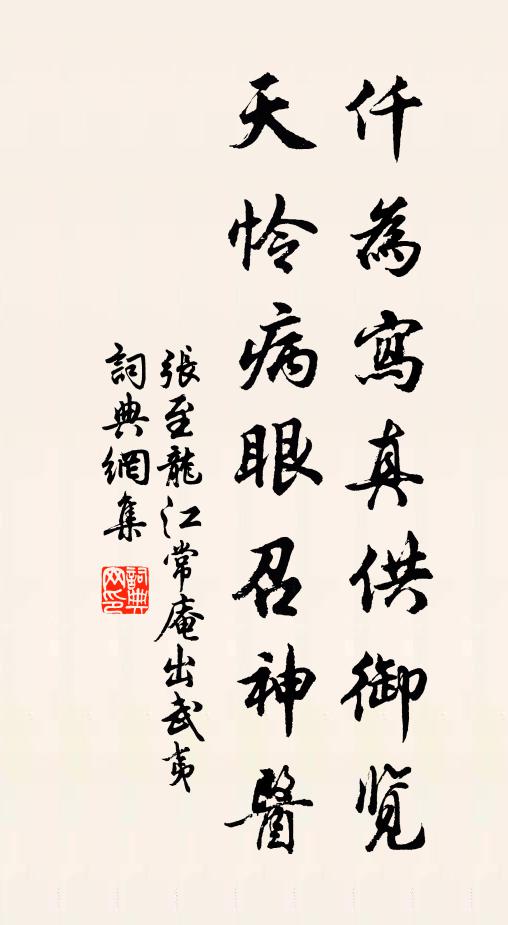 仟為寫真供御覽
天憐病眼召神醫
張至龍江常庵出武夷
詞典網集
詞典網印